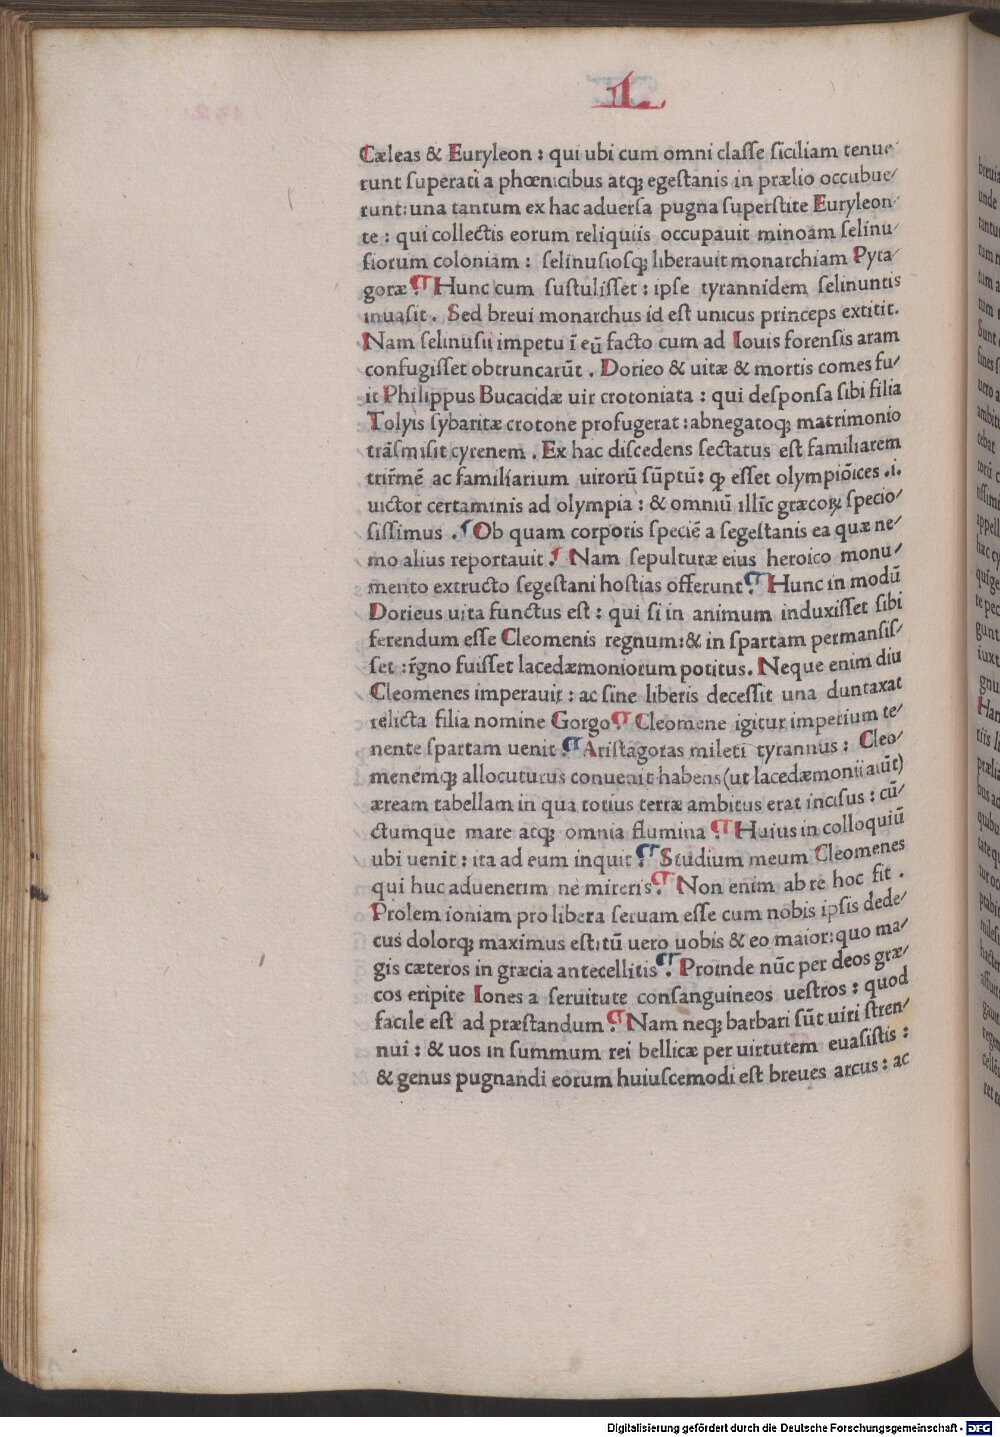 L
Cæleas & Euryleon : qui ubi cum omni classe siciliam tenue⸗
runt superati a phœnicibus atq; egestanis in prælio occubue⸗
runt: una tantum ex hac aduersa pugna superstite Euryleon⸗
te : qui collectis eorum reliquiis occupauit minoam selinu⸗
siorum coloniam : selinusiosq; liberauit monarchiam Pyta⸗
goræ ¶ Hunc cum sustulisset : ipse tyrannidem selinuntis
inuasit . Sed breui monarchus id est unicus princeps extitit.
Nam selinusii impetu ī eū facto cum ad Iouis forensis aram
confugisset obtruncarūt . Dorieo & uitæ & mortis comes fu⸗
it Philippus Bucacidæ uir crotoniata : qui desponsa sibi filia
Tolyis sybaritæ crotone profugerat : abnegatoq; matrimonio
trāsmisit cyrenem . Ex hac discedens sectatus est familiarem
trir̄mē ac familiarium uirorū sūptū: q esset olympiōices .i.
uictor certaminis ad olympia : & omniū illīc græcoꝝ specio⸗
sissimus . ¶ Ob quam corporis speciē a segestanis ea quæ ne⸗
mo alius reportauit . ¶ Nam sepulturæ eius heroico monu⸗
mento extructo segestani hostias offerunt ¶ . Hunc in modū
Dorieus uita functus est : qui si in animum induxisset sibi
ferendum esse Cleomenis regnum: & in spartam permansis⸗
set : r̄gno fuisset lacedæmoniorum potitus. Neque enim diu
Cleomenes imperauit : ac sine liberis decessit una duntaxat
relicta filia nomine Gorgo ¶ Cleomene igitur imperium te⸗
nente spartam uenit ¶ Aristagoras mileti tyrannus : Cleo⸗
menemq; allocuturus conuenit habens (ut lacedæmonii aiūt)
æream tabellam in qua totius terræ ambitus erat incisus : cū⸗
ctumque mare atq; omnia flumina ¶ Huius in colloquiū
ubi uenit : ita ad eum inquit ¶ . Studium meum Cleomenes
qui huc aduenerim ne mireris ¶ . Non enim ab re hoc fit .
Prolem ioniam pro libera seruam esse cum nobis ipsis dede⸗
cus dolorq; maximus est: tū uero uobis & eo maior: quo ma⸗
gis cæteros in græcia antecellitis ¶ . Proinde nūc per deos græ⸗
cos eripite Iones a seruitute consanguineos uestros : quod
facile est ad præstandum ¶ Nam neq; barbari sūt uiri stren⸗
nui : & uos in summum rei bellicæ per uirtutem euasistis :
& genus pugnandi eorum huiuscemodi est breues arcus : ac
Digitalisierung gefördert durch die Deutsche Forschungsgemeinschaft - DFG